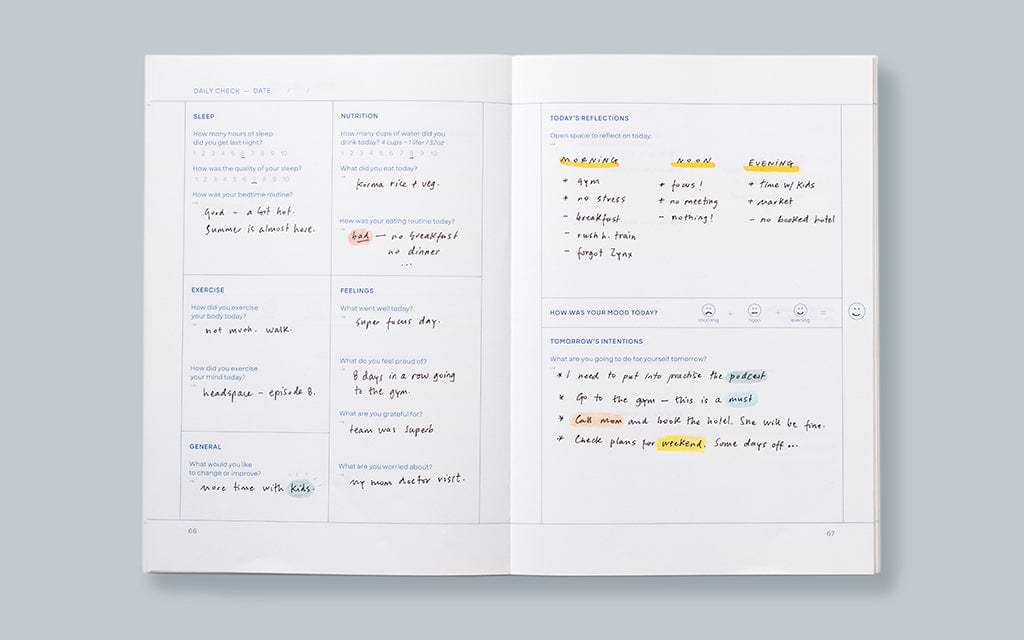 DAILY CHECK — DATE / /
SLEEP
How many hours of sleep
did you get last night?
1 2 3 4 5 6 7 8 9 10
How was the quality of your sleep?
1 2 3 4 5 6 7 8 9 10
How was your bedtime routine?
Good - a bit hot.
Summer is almost here.
NUTRITION
How many cups of water did you
drink today? 4 cups = 1 liter / 32oz
1 2 3 4 5 6 7 8 9 10
What did you eat today?
Korma rice + veg.
How was your eating routine today?
bad — no breakfast
no dinner
...
EXERCISE
How did you exercise
your body today?
not much. walk.
How did you exercise
your mind today?
headspace - episode 8.
FEELINGS
What went well today?
super focus day.
What do you feel proud of?
8 days in a row going
to the gym.
What are you grateful for?
team was superb
What are you worried about?
my mom doctor visit.
GENERAL
What would you like
to change or improve?
more time with kids.
66
TODAY'S REFLECTIONS
Open space to reflect on today.
MORNING
+ gym
+ no stress
- breakfast
- rush h. train
- forgot Zynx
NOON
+ focus!
+ no meeting
- nothing!
EVENING
+ time w/ kids
+ market
- no booked hotel
HOW WAS YOUR MOOD TODAY?
morning + noon + evening =
TOMORROW'S INTENTIONS
What are you going to do for yourself tomorrow?
* I need to put into practise the podcast
* Go to the gym — this is a must
* Call mom and book the hotel. She will be fine.
* Check plans for weekend. Some days off ...
67